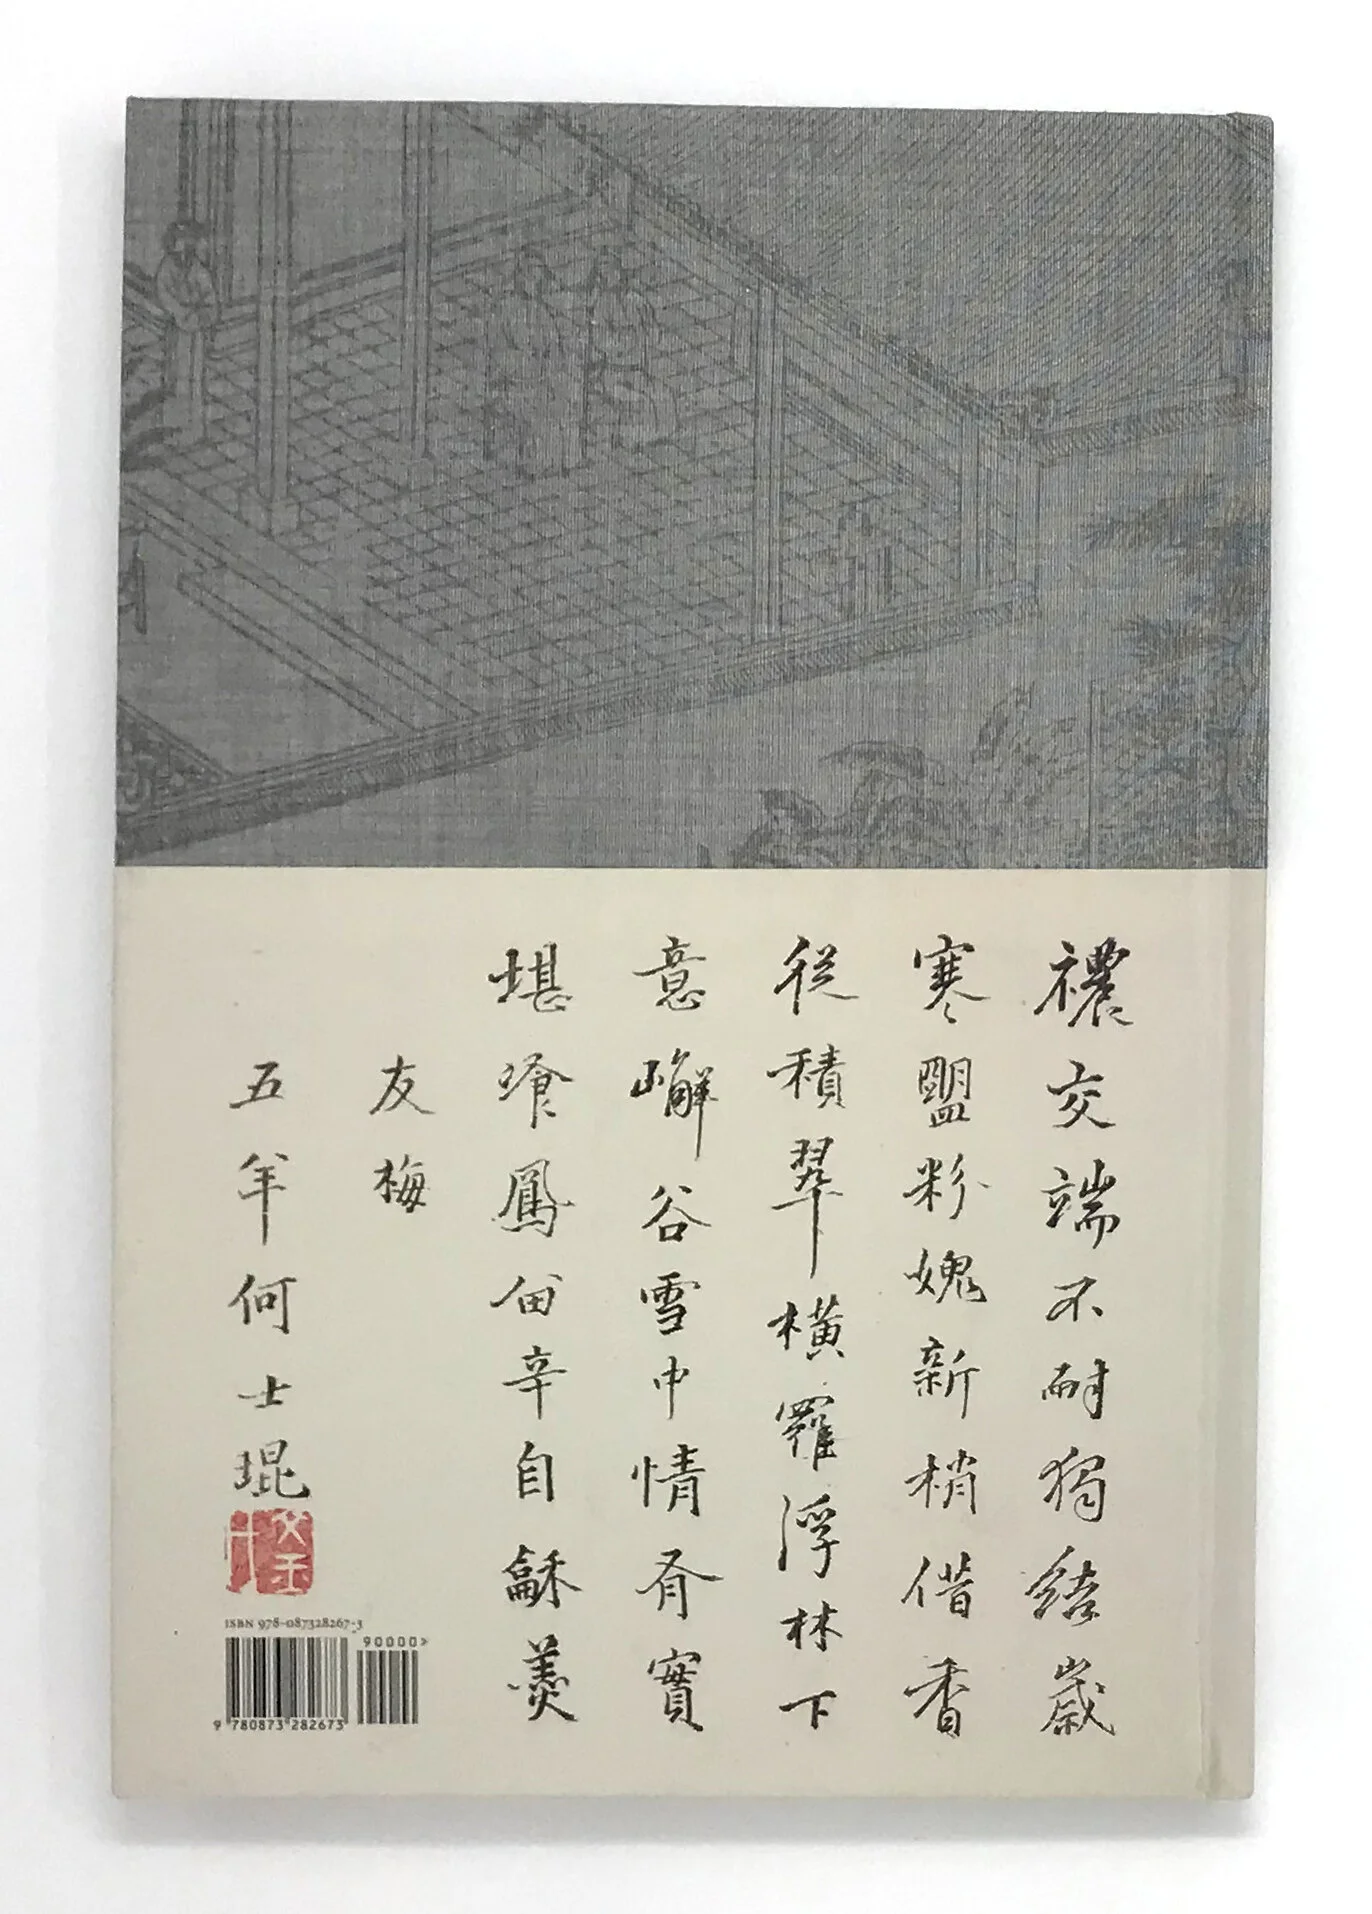 襛交端不耐獨結歲
寒盟粉媿新梢借香
從積翠橫羅浮林下
意嶰谷雪中情有實
堪飡鳳辛自龢羹
友梅
五羊何士琨
ISBN 978-087328267-3
90000>
9 780873 282673